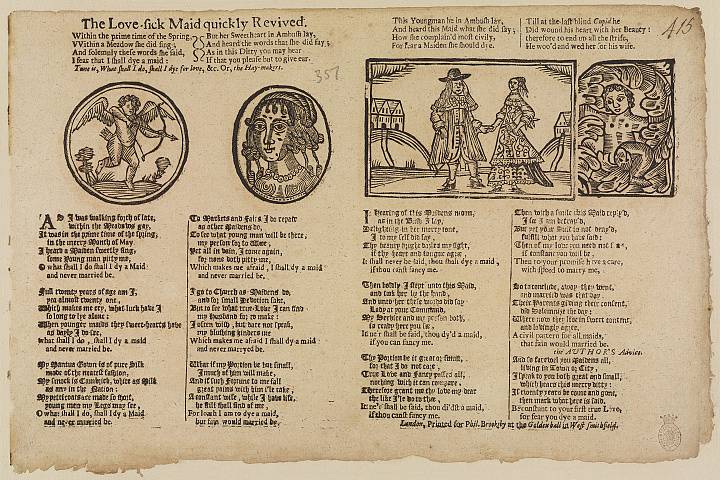 The Love-sick Maid quickly Revived.
Within the prime time of the Spring,
VVithin a Meadow she did sing;
And solemnly these words she said,
I fear that I shall dye a maid:
But her Sweetheart in Ambush lay,
And heard the words that she did say,
As in this Ditty you may hear
If that you please but to give ear.
Tune is, What shall I do, shall I dye for love, &c. Or, the Hay-makers.
This Youngman he in Ambush lay,
And heard this Maid what she did say;
How she complain'd most civily,
For fear a Maiden she should dye.
Till at the last blind Cupid he
Did wound his heart with her Beauty:
therefore to end up all the strife,
He woo'd and wed her for his wife.
415
351
AS I was walking forth of late,
within the Meadows gay,
It was in the prime time of the spring,
in the merry Month of May
I heard a Maiden sweetly sing,
some Young man pitty me,
O what shall I do shall I dy a Maid
and never married be.
Full twenty years of age am I,
yea almost twenty one,
Which makes me cry, what luck have I
so long to lye alone:
When younger maids they sweet-hearts have
as dayly I do see,
what shall I do, shall I dy a maid
and never married be.
My Gown is of pure Silk
made of the neatest fashion,
My smock is Cambrick, white as Milk
as any in the Nation:
My petticoats are made so short,
young men my Legs may see,
O what shall I do, shall I dy a Maid
and never married be.
To Markets and Fairs I do repair
as other Maidens do,
To see what young man will be there,
my person for to Woe;
Yet all in vain, I come again,
for none doth pitty me,
Which makes me afraid, I shall dy a maid
and never married be.
I go to Church as Maidens do,
and for small Devotion sake,
But to see what true-Love I can find
my husband for to make:
I often wish, but dare not speak,
my blushing hinders me
Which makes me afraid I shall dy a maid
and never marryed be.
What if my Portion be but small,
I much of him will make,
And if such Fortune to me fall
great pains with him i'le take;
A constant wife, while I have life,
he still shall find of me,
For loath I am to dye a maid,
but fain would married be.
IN hearing of this Maidens moan,
as in the Bush I lay,
Delighting in her merry tone,
I to my self did say,
Thy beauty bright dazles my sight,
if thy heart and tongue agree,
It shall never be said, thou shalt dye a maid,
if thou canst fancy me.
Then boldly I stept unto this Maid,
and took her by the hand,
And unto her these words did say
Lady at your Command,
My Service and my person both,
is ready here you see,
It ne'r shall be said, thou dy'd a maid,
if you can fancy me.
Thy Portion be it great or small,
for that I do not care,
True Love and Fancy passes all,
nothing with it can compare,
Therefore grant me thy love my dear
the like I'le do to thee,
It ne'r shall be said, thou didst a maid,
if thou canst fancy me.
Then with a smile this Maid reply'd,
Sir I am betray'd,
But yet your Suit is not deny'd
fulfill what you have said:
Then of my love you need not fear,
if constant you will be,
Then to your promise have a care,
with speed to marry me,
So to conclude, away they went,
and married was that day,
Their Parents giving their consent,
did solemnize the day:
Where now they live in sweet content,
and lovingly agree,
A civil pattern for all maids,
that fain would married be.
the AUTHOR'S Advice.
And so farewel you Maidens all,
living in Town or City,
I speak to you both great and small,
which hears this merry ditty:
If twenty years be come and gone,
then mark what here is said,
Be constant to your first true Love,
for fear you dye a maid.
London, Printed for Phil. Brooksby at the Golden ball in West smithfield.